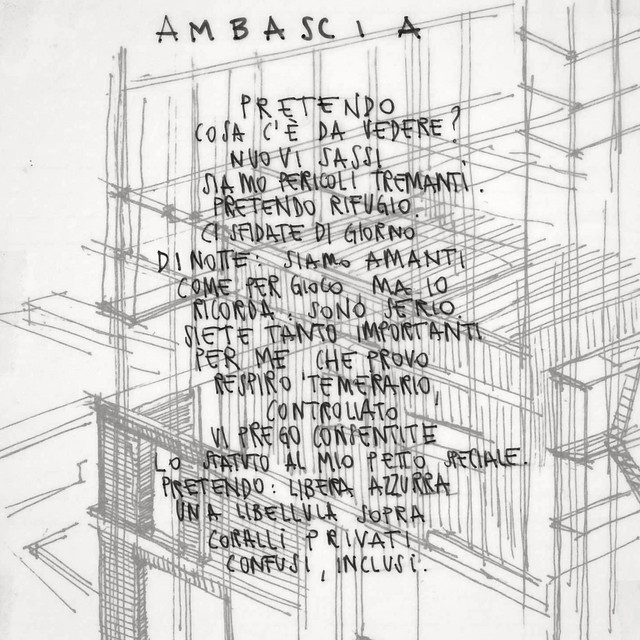 AMBASCIA
PRETENDO
COSA C'È DA VEDERE?
NUOVI SASSI
SIAMO PERICOLI TREMANTI.
PRETENDO RIFUGIO.
CI SFIDATE DI GIORNO
DI NOTTE: SIAMO AMANTI
COME PER GIOCO MA IO
RICORDA: SONO SERIO.
SIETE TANTO IMPORTANTI
PER ME CHE PROVO
RESPIRO TEMERARIO,
CONTROLLATO
VI PREGO CONSENTITE
LO STATUTO AL MIO PETTO SPECIALE.
PRETENDO: LIBERA AZZURRA
UNA LIBELLULA SOPRA
CORALLI PRIVATI
CONFUSI, INCLUSI.